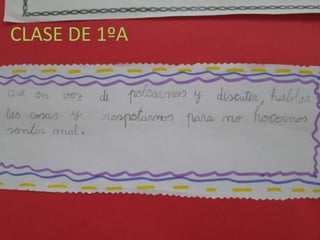 CLASE DE 1ºA
que en vez de pelearnos y discutir, hablar
las cosas y respetarnos para no hacernos
sentir mal.